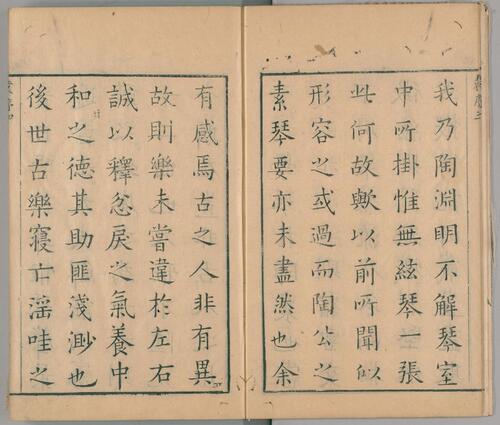 我乃陶淵明不解琴室
中所掛惟無絃琴一張
此何故歟以前所聞似
形容之或過而陶公之
素琴要亦未盡然也余
有感焉古之人非有異
故則樂未嘗違於左右
誠以釋忿戾之氣養中
和之德其助匪淺尠也
後世古樂寖亡淫哇之